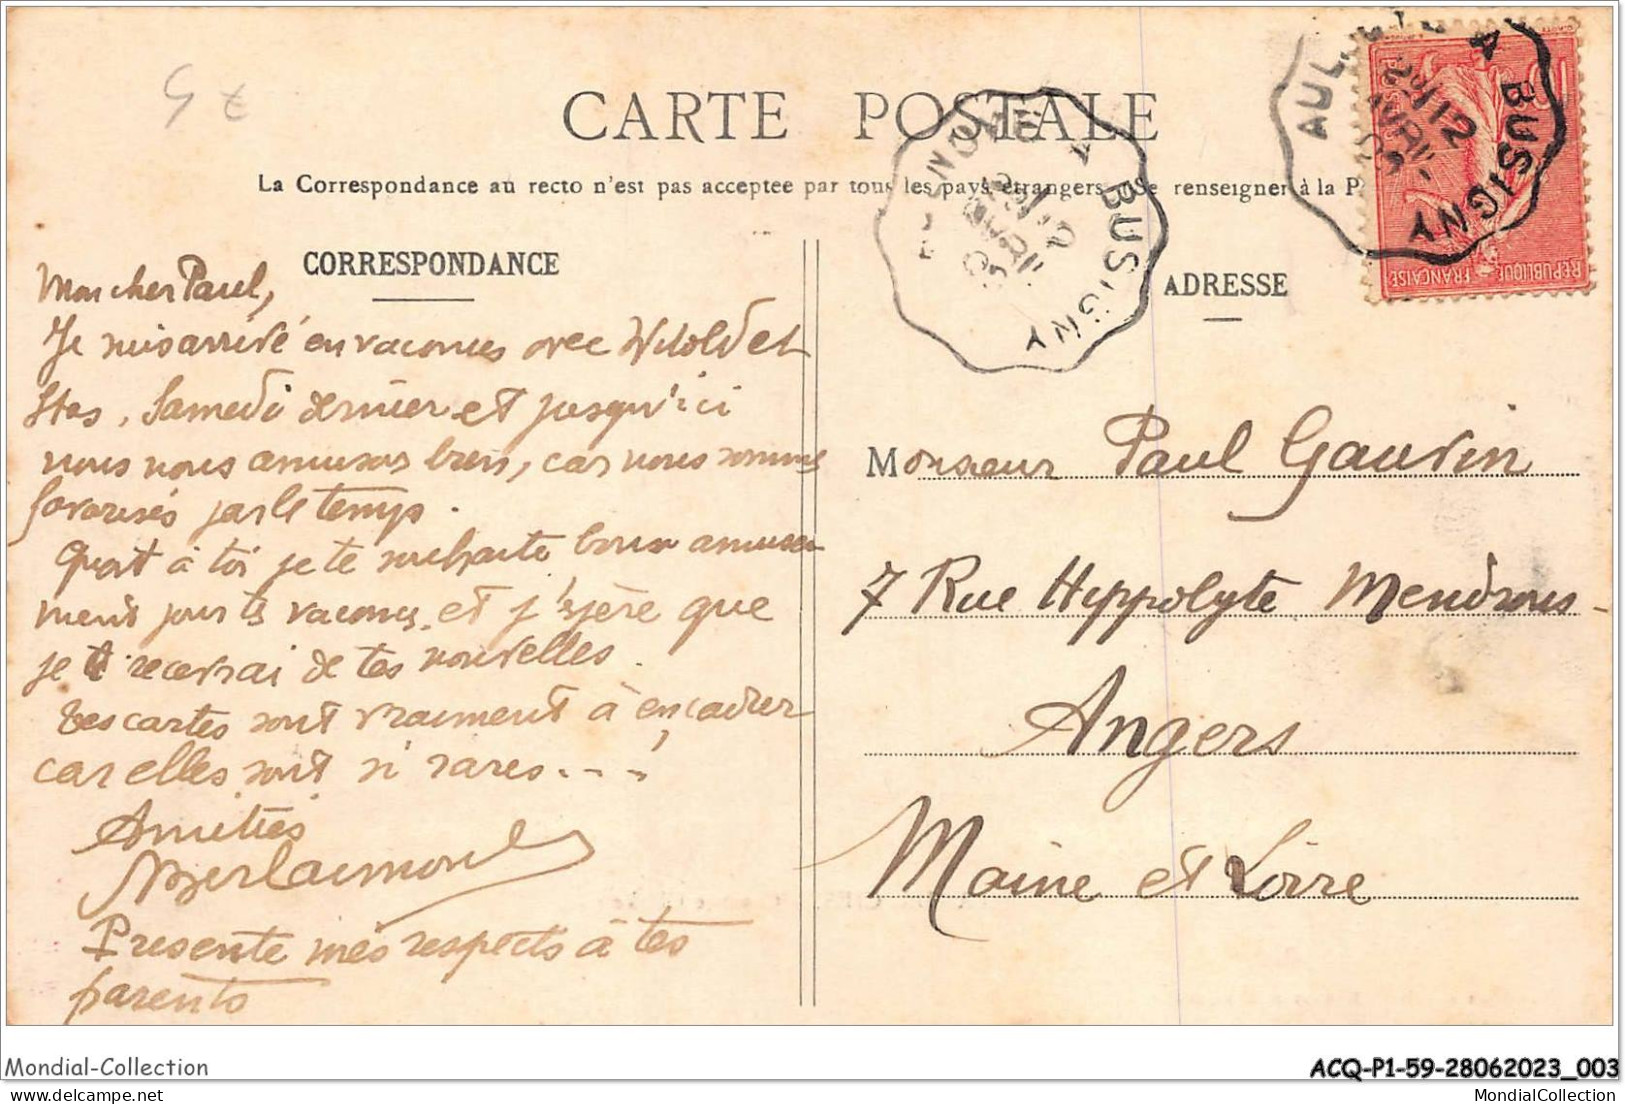 CARTE POSTALE
La Correspondance au recto n'est pas acceptee par tous les pays étrangers. Se renseigner à la P
CORRESPONDANCE
ADRESSE
AUL A BUSIGNY
A BUSIGNY
12
REPUBLIQUE FRANÇAISE
Mon cher Paul,
Je suis arrivé en vacances avec Witold et
Stas, Samedi dernier et jusqu'ici
nous nous amusons bien, car nous sommes
favorisés par le temps.
Quant à toi je te souhaite bons amuse
ments pour tes vacances, et j'espère que
je recevrai de tes nouvelles.
Tes cartes sont vraiment à encadrer
car elles sont si rares...!
Amitiés
Présente mes respects à tes
parents
Monsieur Paul Gauvin
7 Rue Hippolyte
Angers
Maine et Loire
Mondial-Collection
ACQ-P1-59-28062023_003
MondialCollection